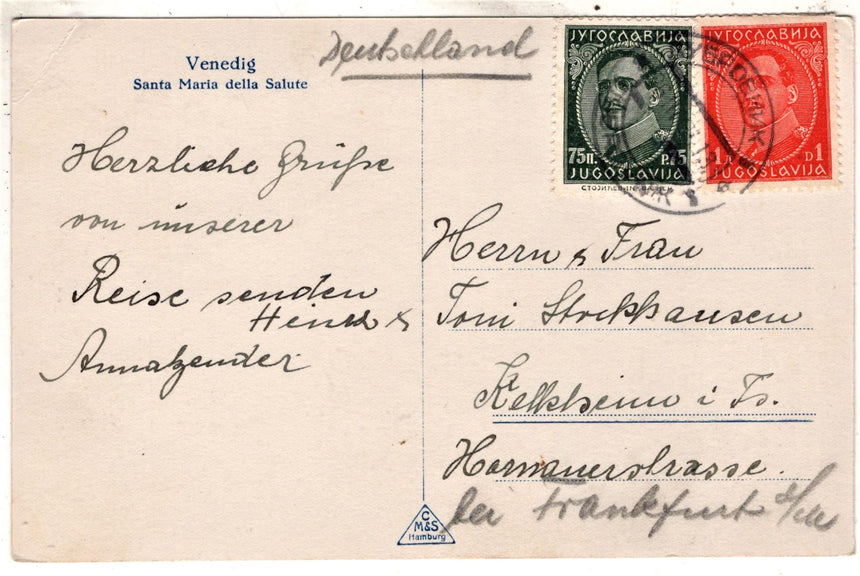 Deutschland
Venedig
Santa Maria della Salute
Herzliche Grüße
von unserer
Reise senden
Heinz &
Anna
ЈУГОСЛАВИЈА
75п. P.75
JUGOSLAVIJA
ЈУГОСЛАВИЈА
1Д D1
JUGOSLAVIJA
Herrn & Frau
Toni Stockhausen
Kelkheim i Ts.
Hornauerstrasse.
bei Frankfurt a/M
C
M&S
Hamburg